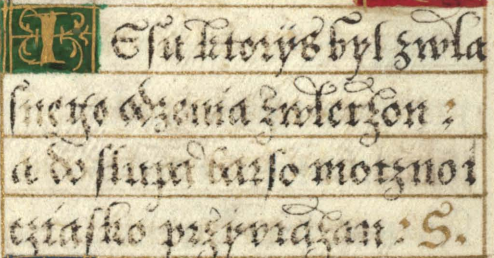 IESsu ktorÿs bÿl zwla
snego odzenia zwleczon :
a do slupa barso motzno i
cziasko przÿviązan : S.